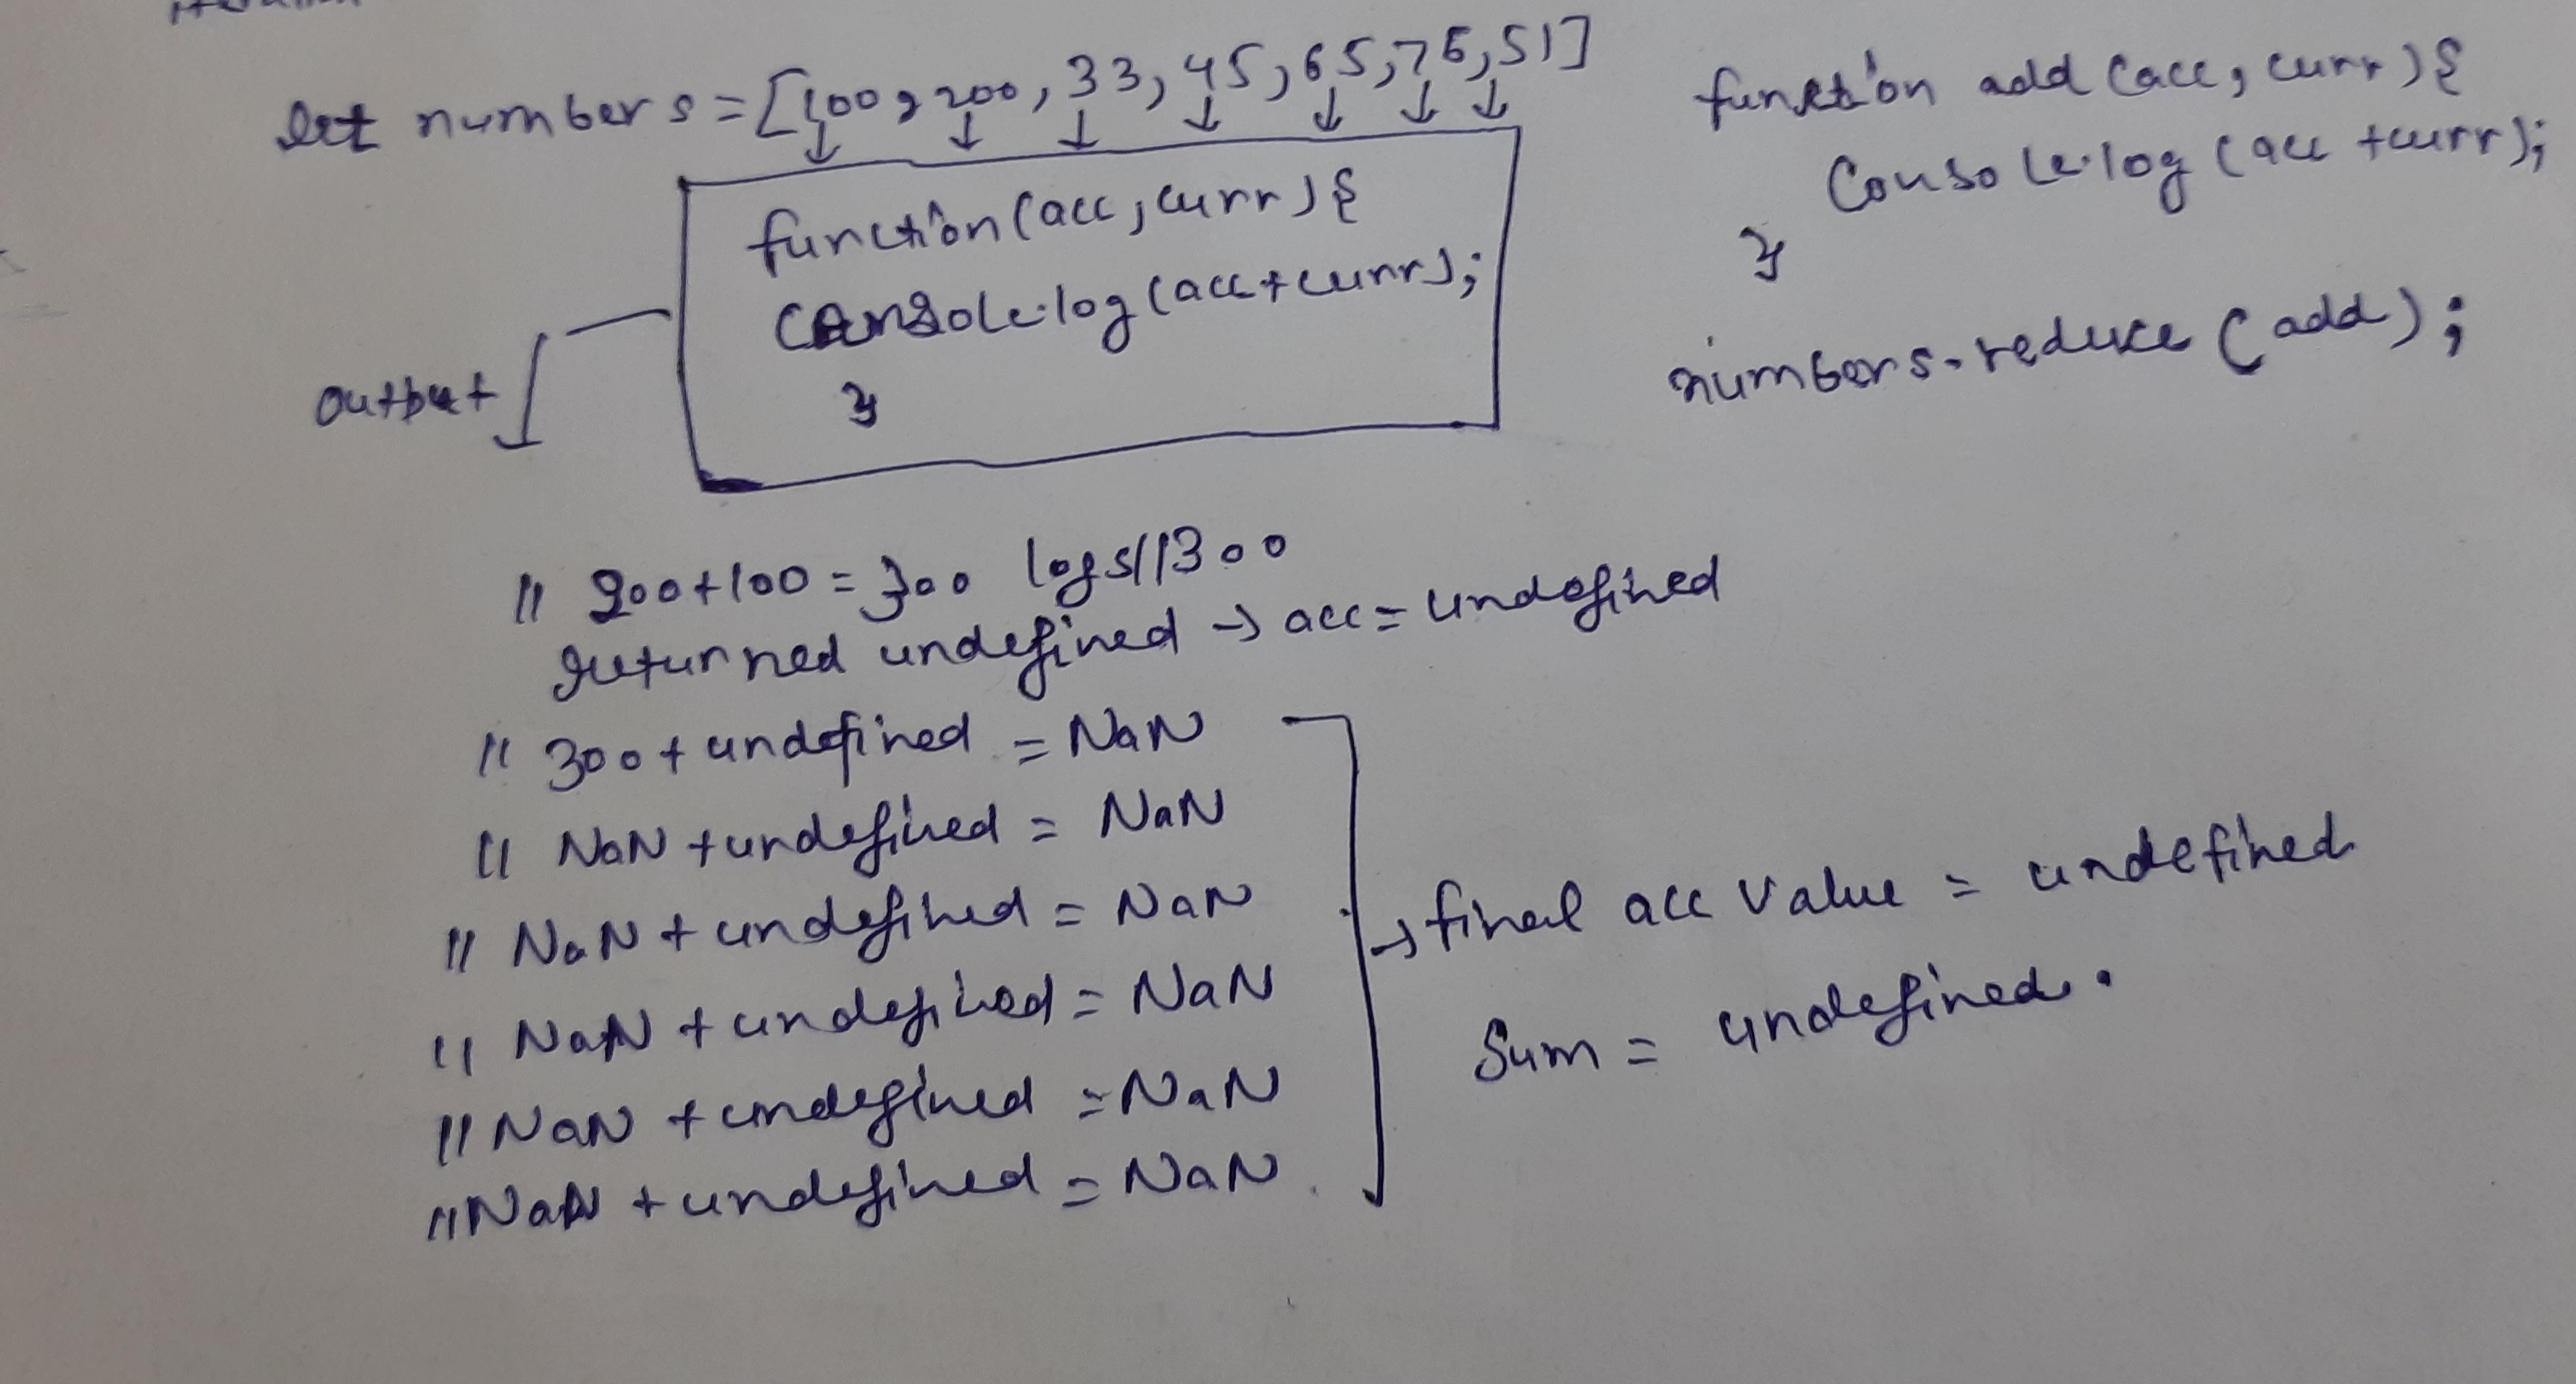 let numbers = [100, 200, 33, 45, 65, 76, 51]
function (acc, curr) {
console.log (acc+curr);
}
output
function add (acc, curr) {
Console.log (acc + curr);
}
numbers.reduce (add);
// 200+100 = 300 logs//300
returned undefined → acc = undefined
// 300 + undefined = NaN
// NaN + undefined = NaN
// NaN + undefined = NaN
// NaN + undefined = NaN
// NaN + undefined = NaN
// NaN + undefined = NaN
→ final acc value = undefined
Sum = undefined.